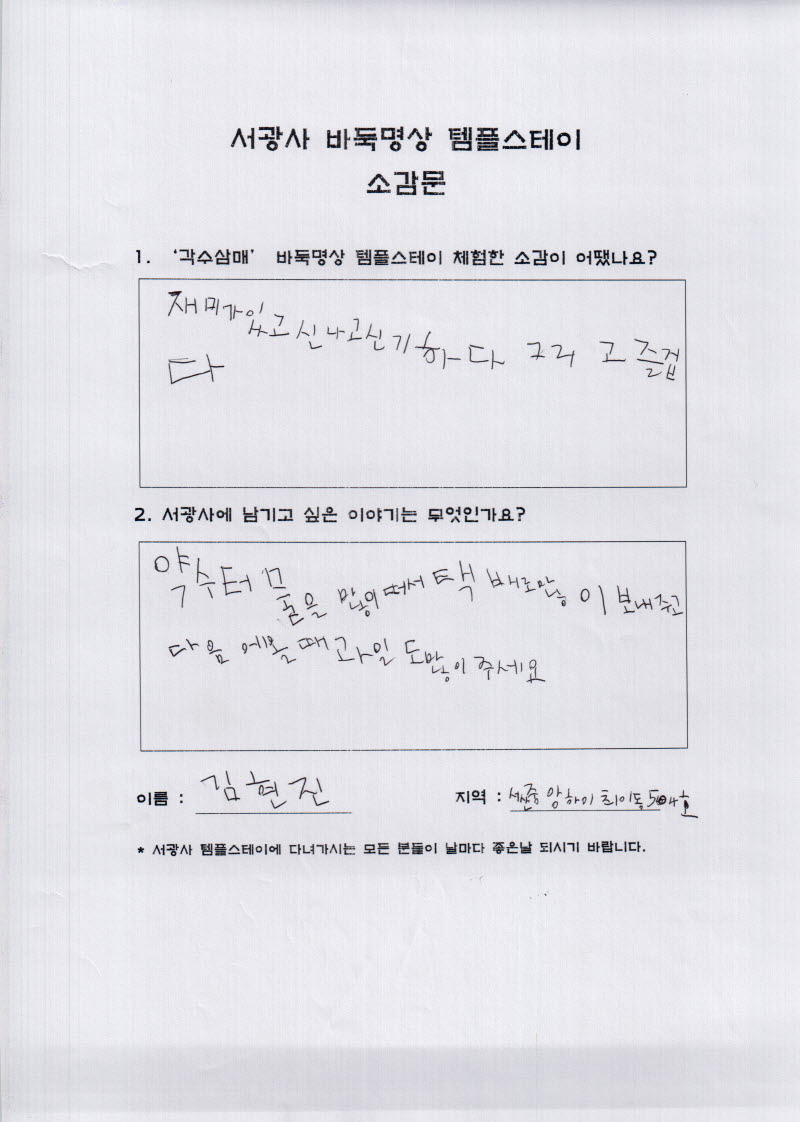 서광사 바둑명상 템플스테이
소감문
1. ‘각수삼매’ 바둑명상 템플스테이 체험한 소감이 어땠나요?
재미가있고 신나고신기하다 그리고 즐겁
다
2. 서광사에 남기고 싶은 이야기는 무엇인가요?
약수터 물을 많이 떠서 택배로많이 보내주고
다음에올때과일도많이 주세요
이름 : 김현진
지역 : 504호
* 서광사 템플스테이에 다녀가시는 모든 분들이 날마다 좋은날 되시기 바랍니다.